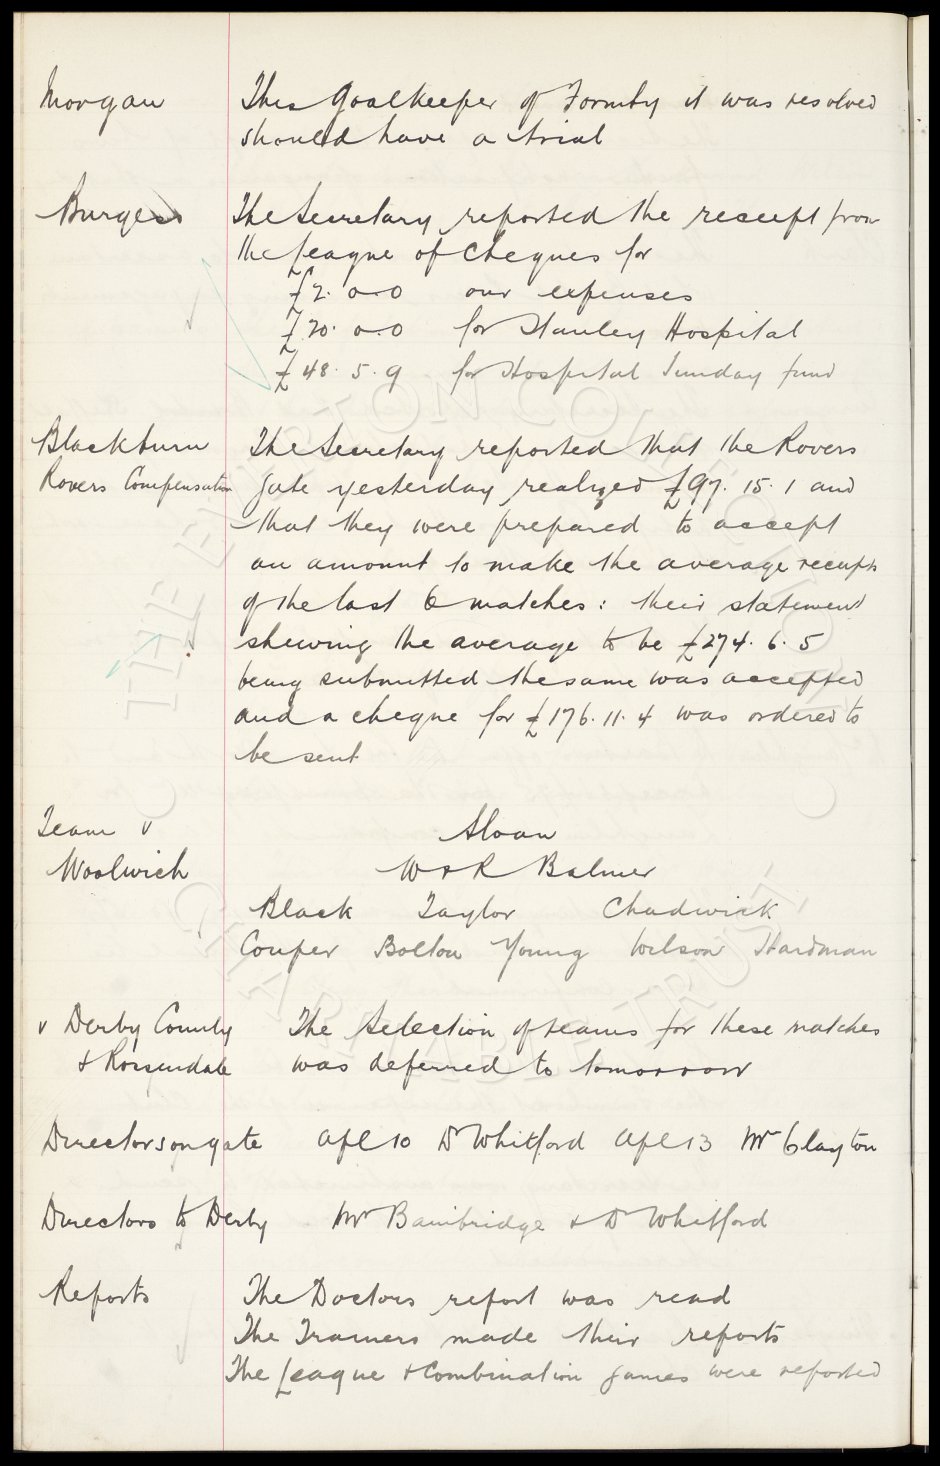 Morgan This Goalkeeper of Formby it was resolved
should have a trial
Burgess The Secretary reported the receipt from
the League of Cheques for
£2. 0-0 our expenses
£20. 0.0 for Stanley Hospital
£48. 5. 9 for Hospital Sunday fund
Blackburn The Secretary reported that the Rovers
Rovers Compensation gate yesterday realized £97. 15. 1 and
that they were prepared to accept
an amount to make the average receipts
of the last 6 matches: their statement
shewing the average to be £274. 6. 5
being submitted the same was accepted
and a cheque for £176. 11. 4 was ordered to
be sent
Team v Sloan
Woolwich W & R Balmer
Black Taylor Chadwick
Couper Bolton Young Wilson Hardman
v Derby County The Selection of teams for these matches
& Rossendale was deferred to tomorrow
Directors on gate Apl 10 Dr Whitford Apl 13 Mr Clayton
Directors to Derby Mr Bainbridge & Dr Whitford
Reports The Doctors report was read
The Trainers made their reports
The League & Combination games were reported
THE EVERTON COLLECTION
CHARITABLE TRUST